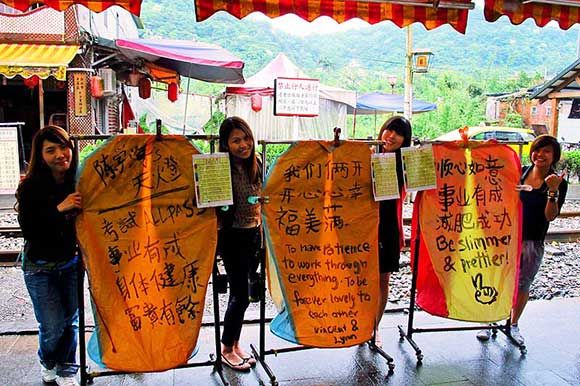 天火燈
考試ALL PASS
事业有成
身体健康
富貴有餘
我们两開
开心心幸
福美满
To have patience
to work through
everything. To be
forever lovely to
each other
vincent &
Lynn
顺心如意
事业有成
减肥成功
Be slimmer
& prettier!